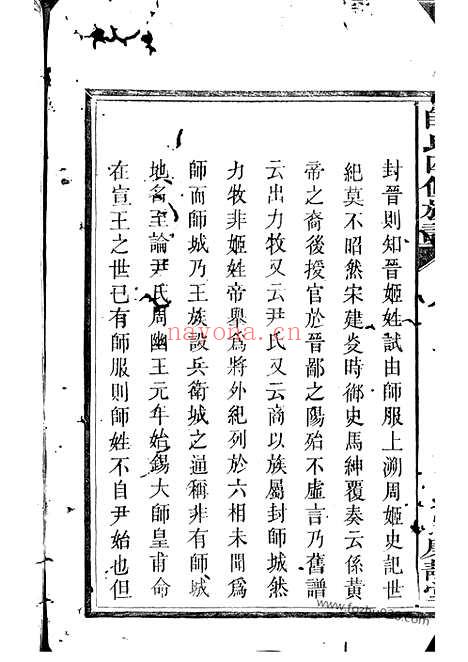 封晉則知晉姬姓試由師服上溯周姬史記世
紀莫不昭然宋建炎時御史馬紳覆奏云係黃
帝之裔後授官於晉鄙之陽殆不虛言乃舊譜
云出力牧又云尹氏又云商以族屬封師城然
力牧非姬姓帝舉為將外紀列於六相未聞為
師而師城乃王族設兵衛城之通稱非有師城
地名至論尹氏周幽王元年始錫大師皇甫命
在宣王之世已有師服則師姓不自尹始也但
nayona.cn
www.fozhu920.com